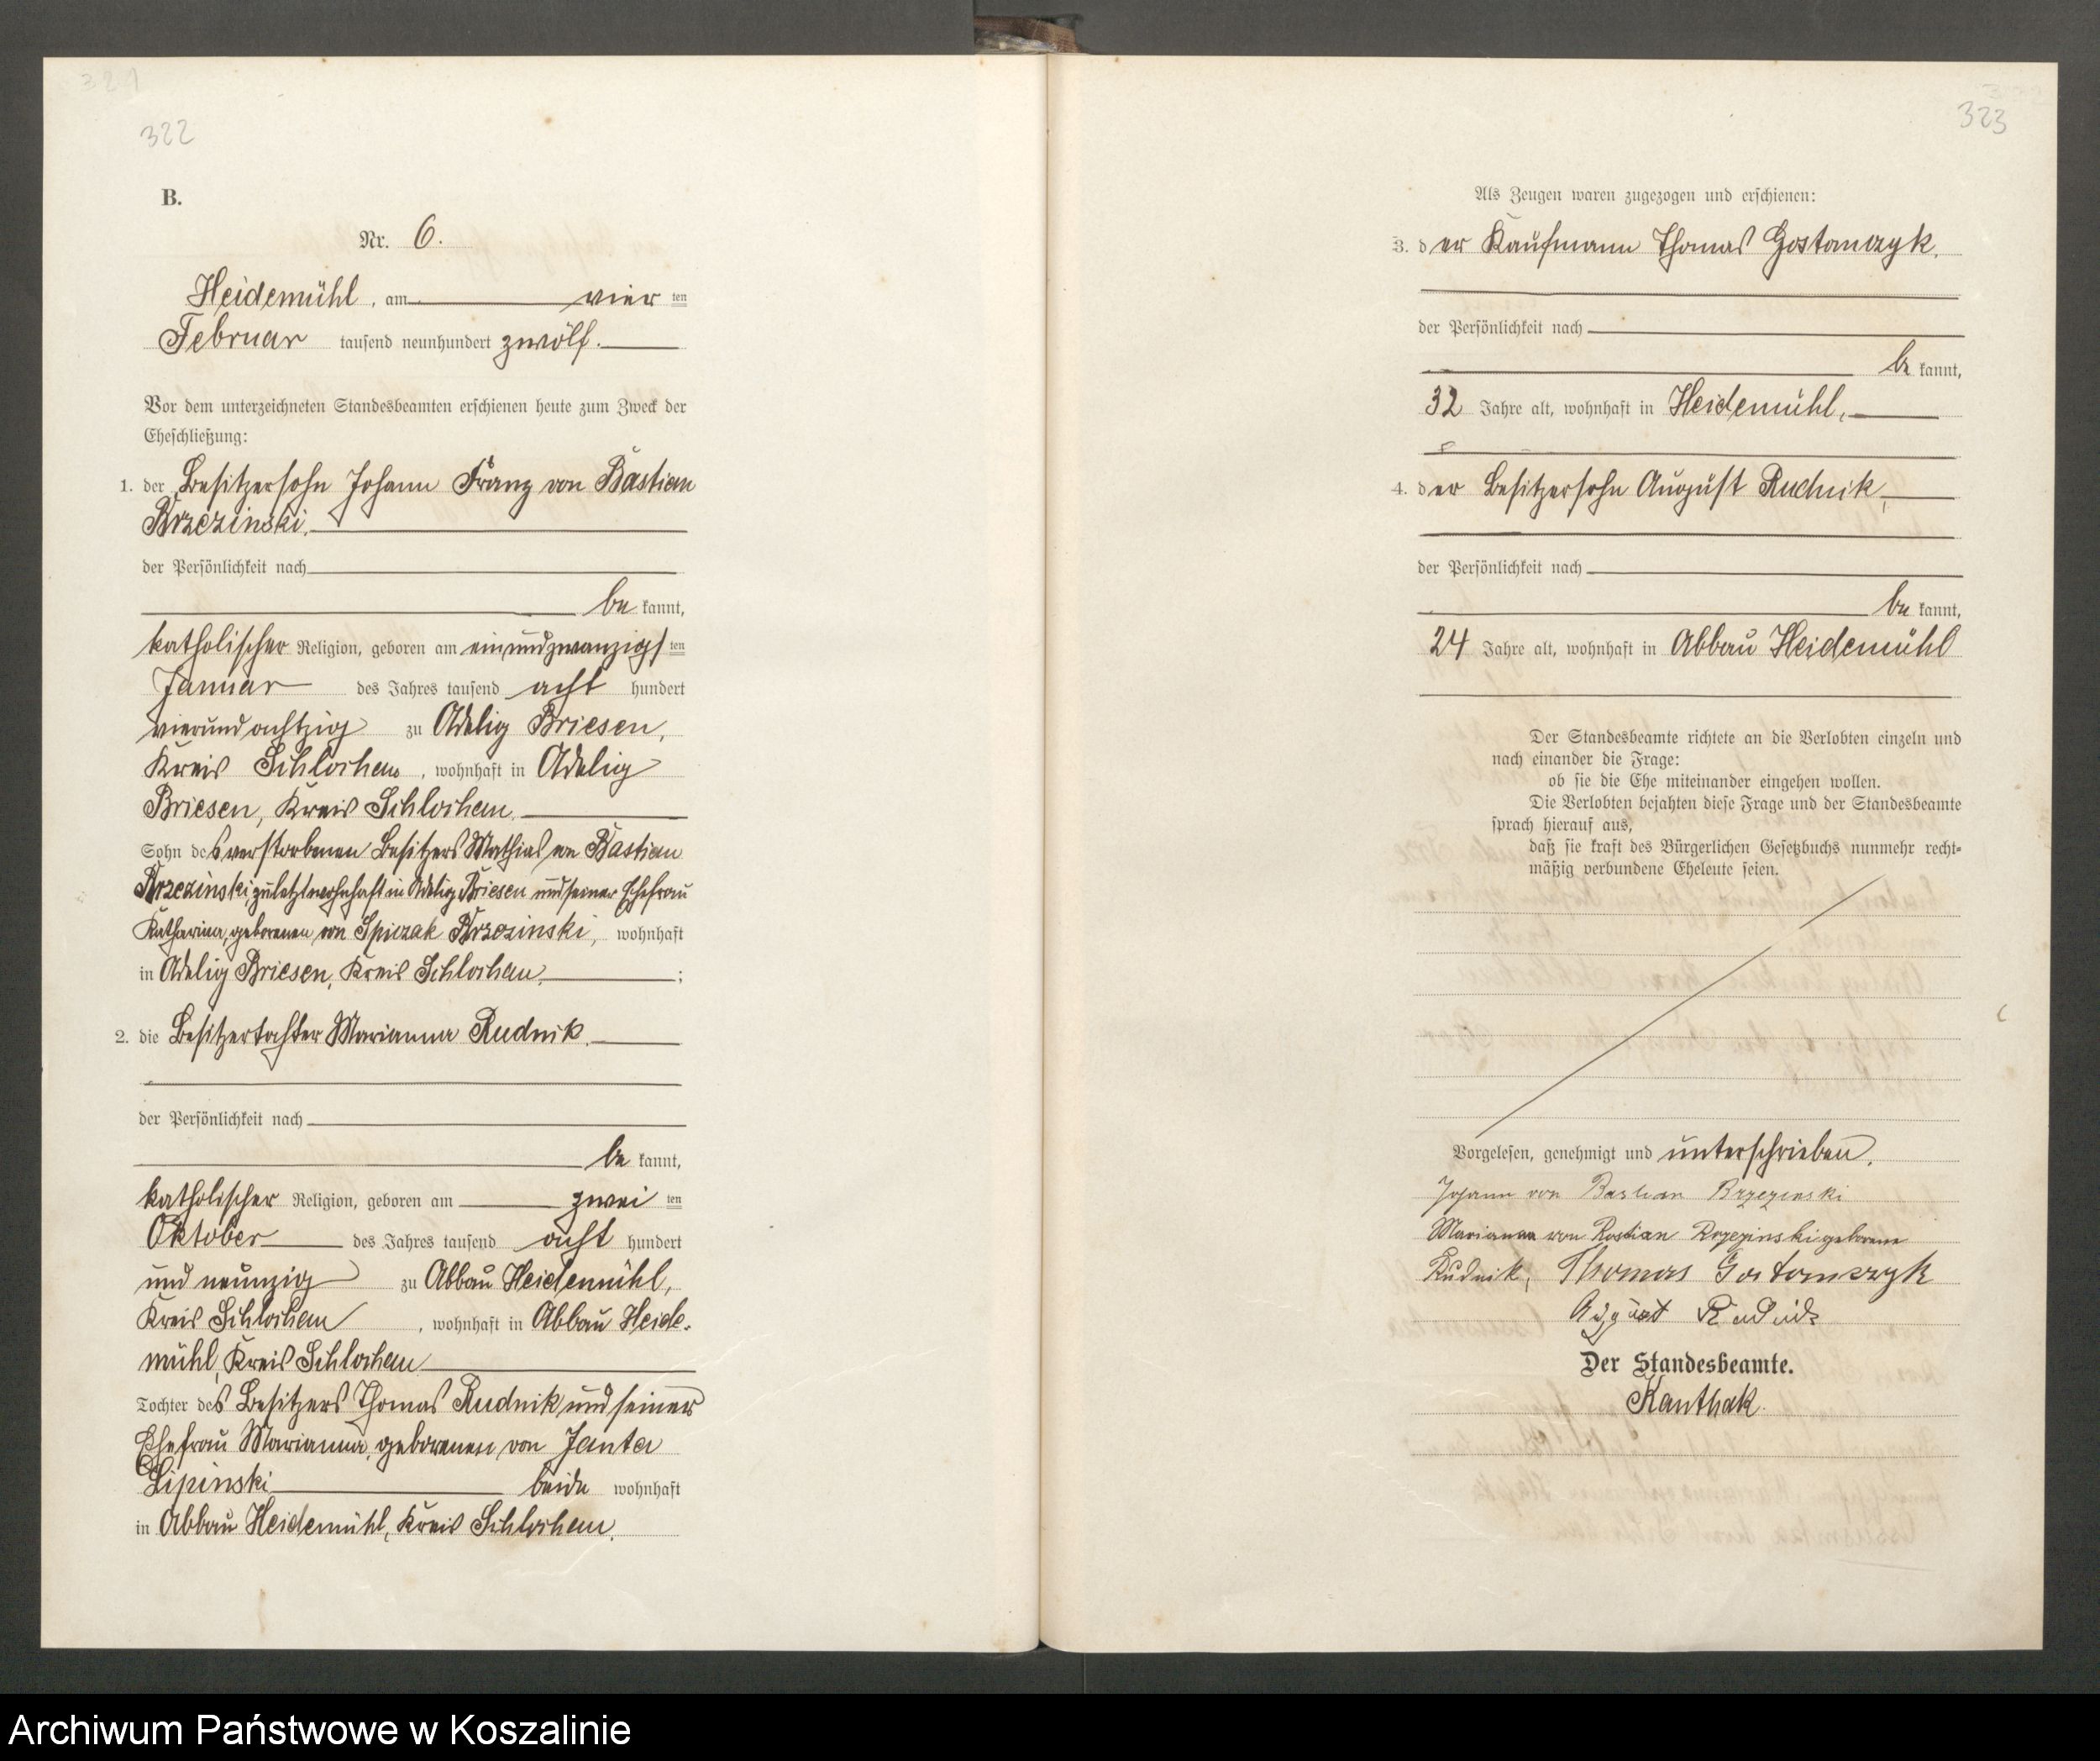 322
B.
Nr. 6.
Heidemühl, am vier ten
Februar tausend neunhundert zwölf.
Vor dem unterzeichneten Standesbeamten erschienen heute zum Zweck der
Eheschließung:
1. der Besitzersohn Johann Franz von Bastian
Brzezinski,
der Persönlichkeit nach
be kannt,
katholischer Religion, geboren am einundzwanzigs ten
Januar des Jahres tausend acht hundert
vierundachtzig zu Adelig Briesen,
Kreis Schlochau, wohnhaft in Adelig
Briesen, Kreis Schlochau,
Sohn des verstorbenen Besitzers Mathias von Bastian
Brzezinski, zuletzt wohnhaft in Adelig Briesen und seiner Ehefrau
Katharina, geborenen von Spiczak Brzezinski, wohnhaft
in Adelig Briesen, Kreis Schlochau, ;
2. die Besitzertochter Marianna Rudnik,
der Persönlichkeit nach
be kannt,
katholischer Religion, geboren am zwei ten
Oktober des Jahres tausend acht hundert
und neunzig zu Abbau Heidemühl,
Kreis Schlochau, wohnhaft in Abbau Heide-
mühl, Kreis Schlochau
Tochter des Besitzers Thomas Rudnik und seiner
Ehefrau Marianna, geborenen von Janta
Lipinski beide wohnhaft
in Abbau Heidemühl, Kreis Schlochau.
323
Als Zeugen waren zugezogen und erschienen:
3. der Kaufmann Thomas Gostomczyk,
der Persönlichkeit nach
be kannt,
32 Jahre alt, wohnhaft in Heidemühl,
4. der Besitzersohn August Rudnik,
der Persönlichkeit nach
be kannt,
24 Jahre alt, wohnhaft in Abbau Heidemühl
Der Standesbeamte richtete an die Verlobten einzeln und
nach einander die Frage:
ob sie die Ehe miteinander eingehen wollen.
Die Verlobten bejahten diese Frage und der Standesbeamte
sprach hierauf aus,
daß sie kraft des Bürgerlichen Gesetzbuchs nunmehr recht=
mäßig verbundene Eheleute seien.
Vorgelesen, genehmigt und unterschrieben.
Johann von Bastian Brzezinski
Marianna von Bastian Brzezinski geborene
Rudnik, Thomas Gostomczyk
August Rudnik
Der Standesbeamte.
Kanthak.
Archiwum Państwowe w Koszalinie